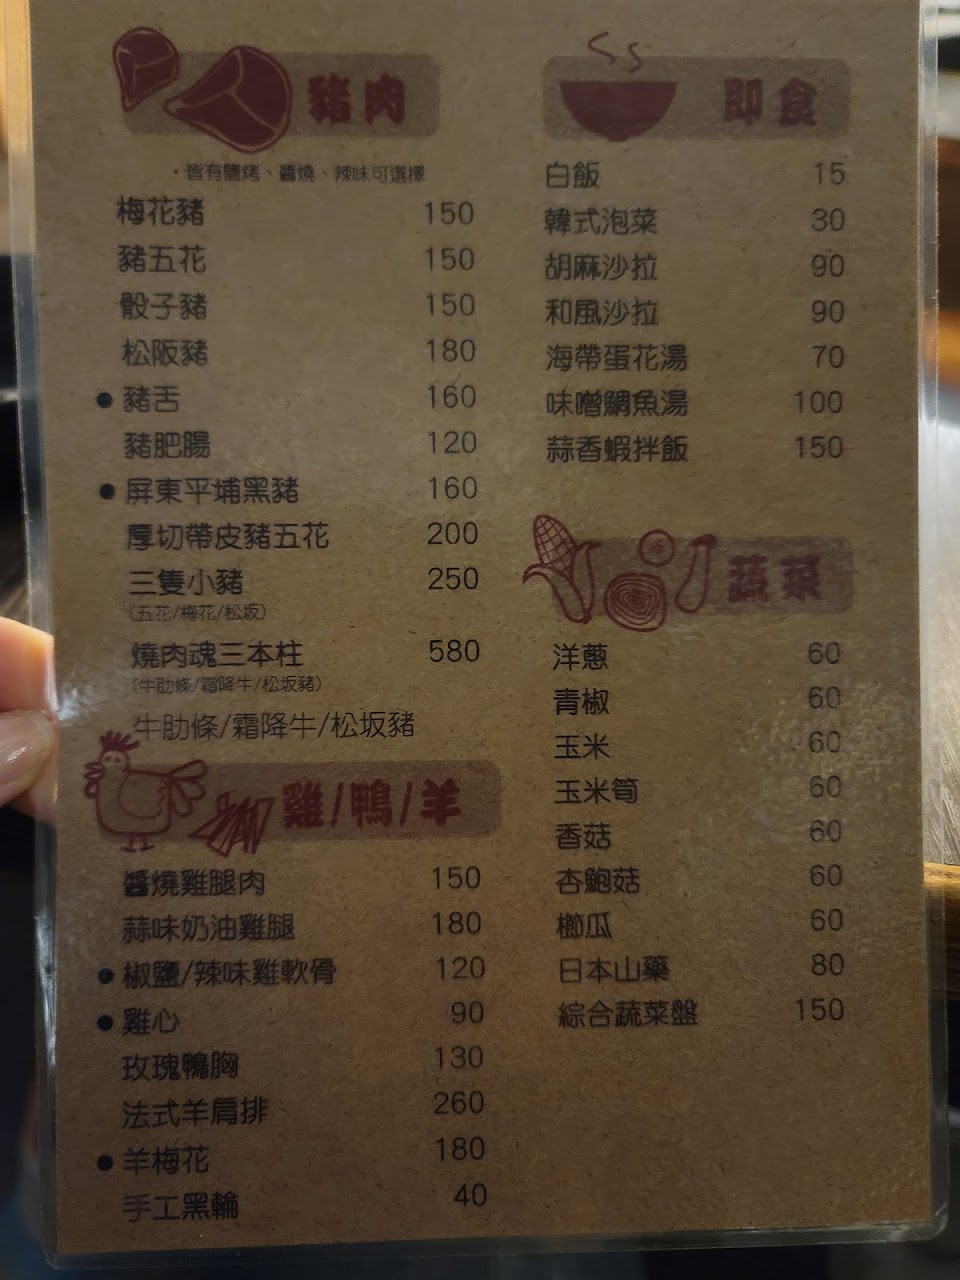 豬肉
・皆有鹽烤、醬燒、辣味可選擇
梅花豬 150
豬五花 150
骰子豬 150
松阪豬 180
● 豬舌 160
豬肥腸 120
● 屏東平埔黑豬 160
厚切帶皮豬五花 200
三隻小豬 250
(五花/梅花/松坂)
燒肉魂三本柱 580
(牛肋條/霜降牛/松坂豬)
牛肋條/霜降牛/松坂豬
雞/鴨/羊
醬燒雞腿肉 150
蒜味奶油雞腿 180
● 椒鹽/辣味雞軟骨 120
● 雞心 90
玫瑰鴨胸 130
法式羊肩排 260
● 羊梅花 180
手工黑輪 40
即食
白飯 15
韓式泡菜 30
胡麻沙拉 90
和風沙拉 90
海帶蛋花湯 70
味噌鯛魚湯 100
蒜香蝦拌飯 150
蔬菜
洋蔥 60
青椒 60
玉米 60
玉米筍 60
香菇 60
杏鮑菇 60
櫛瓜 60
日本山藥 80
綜合蔬菜盤 150